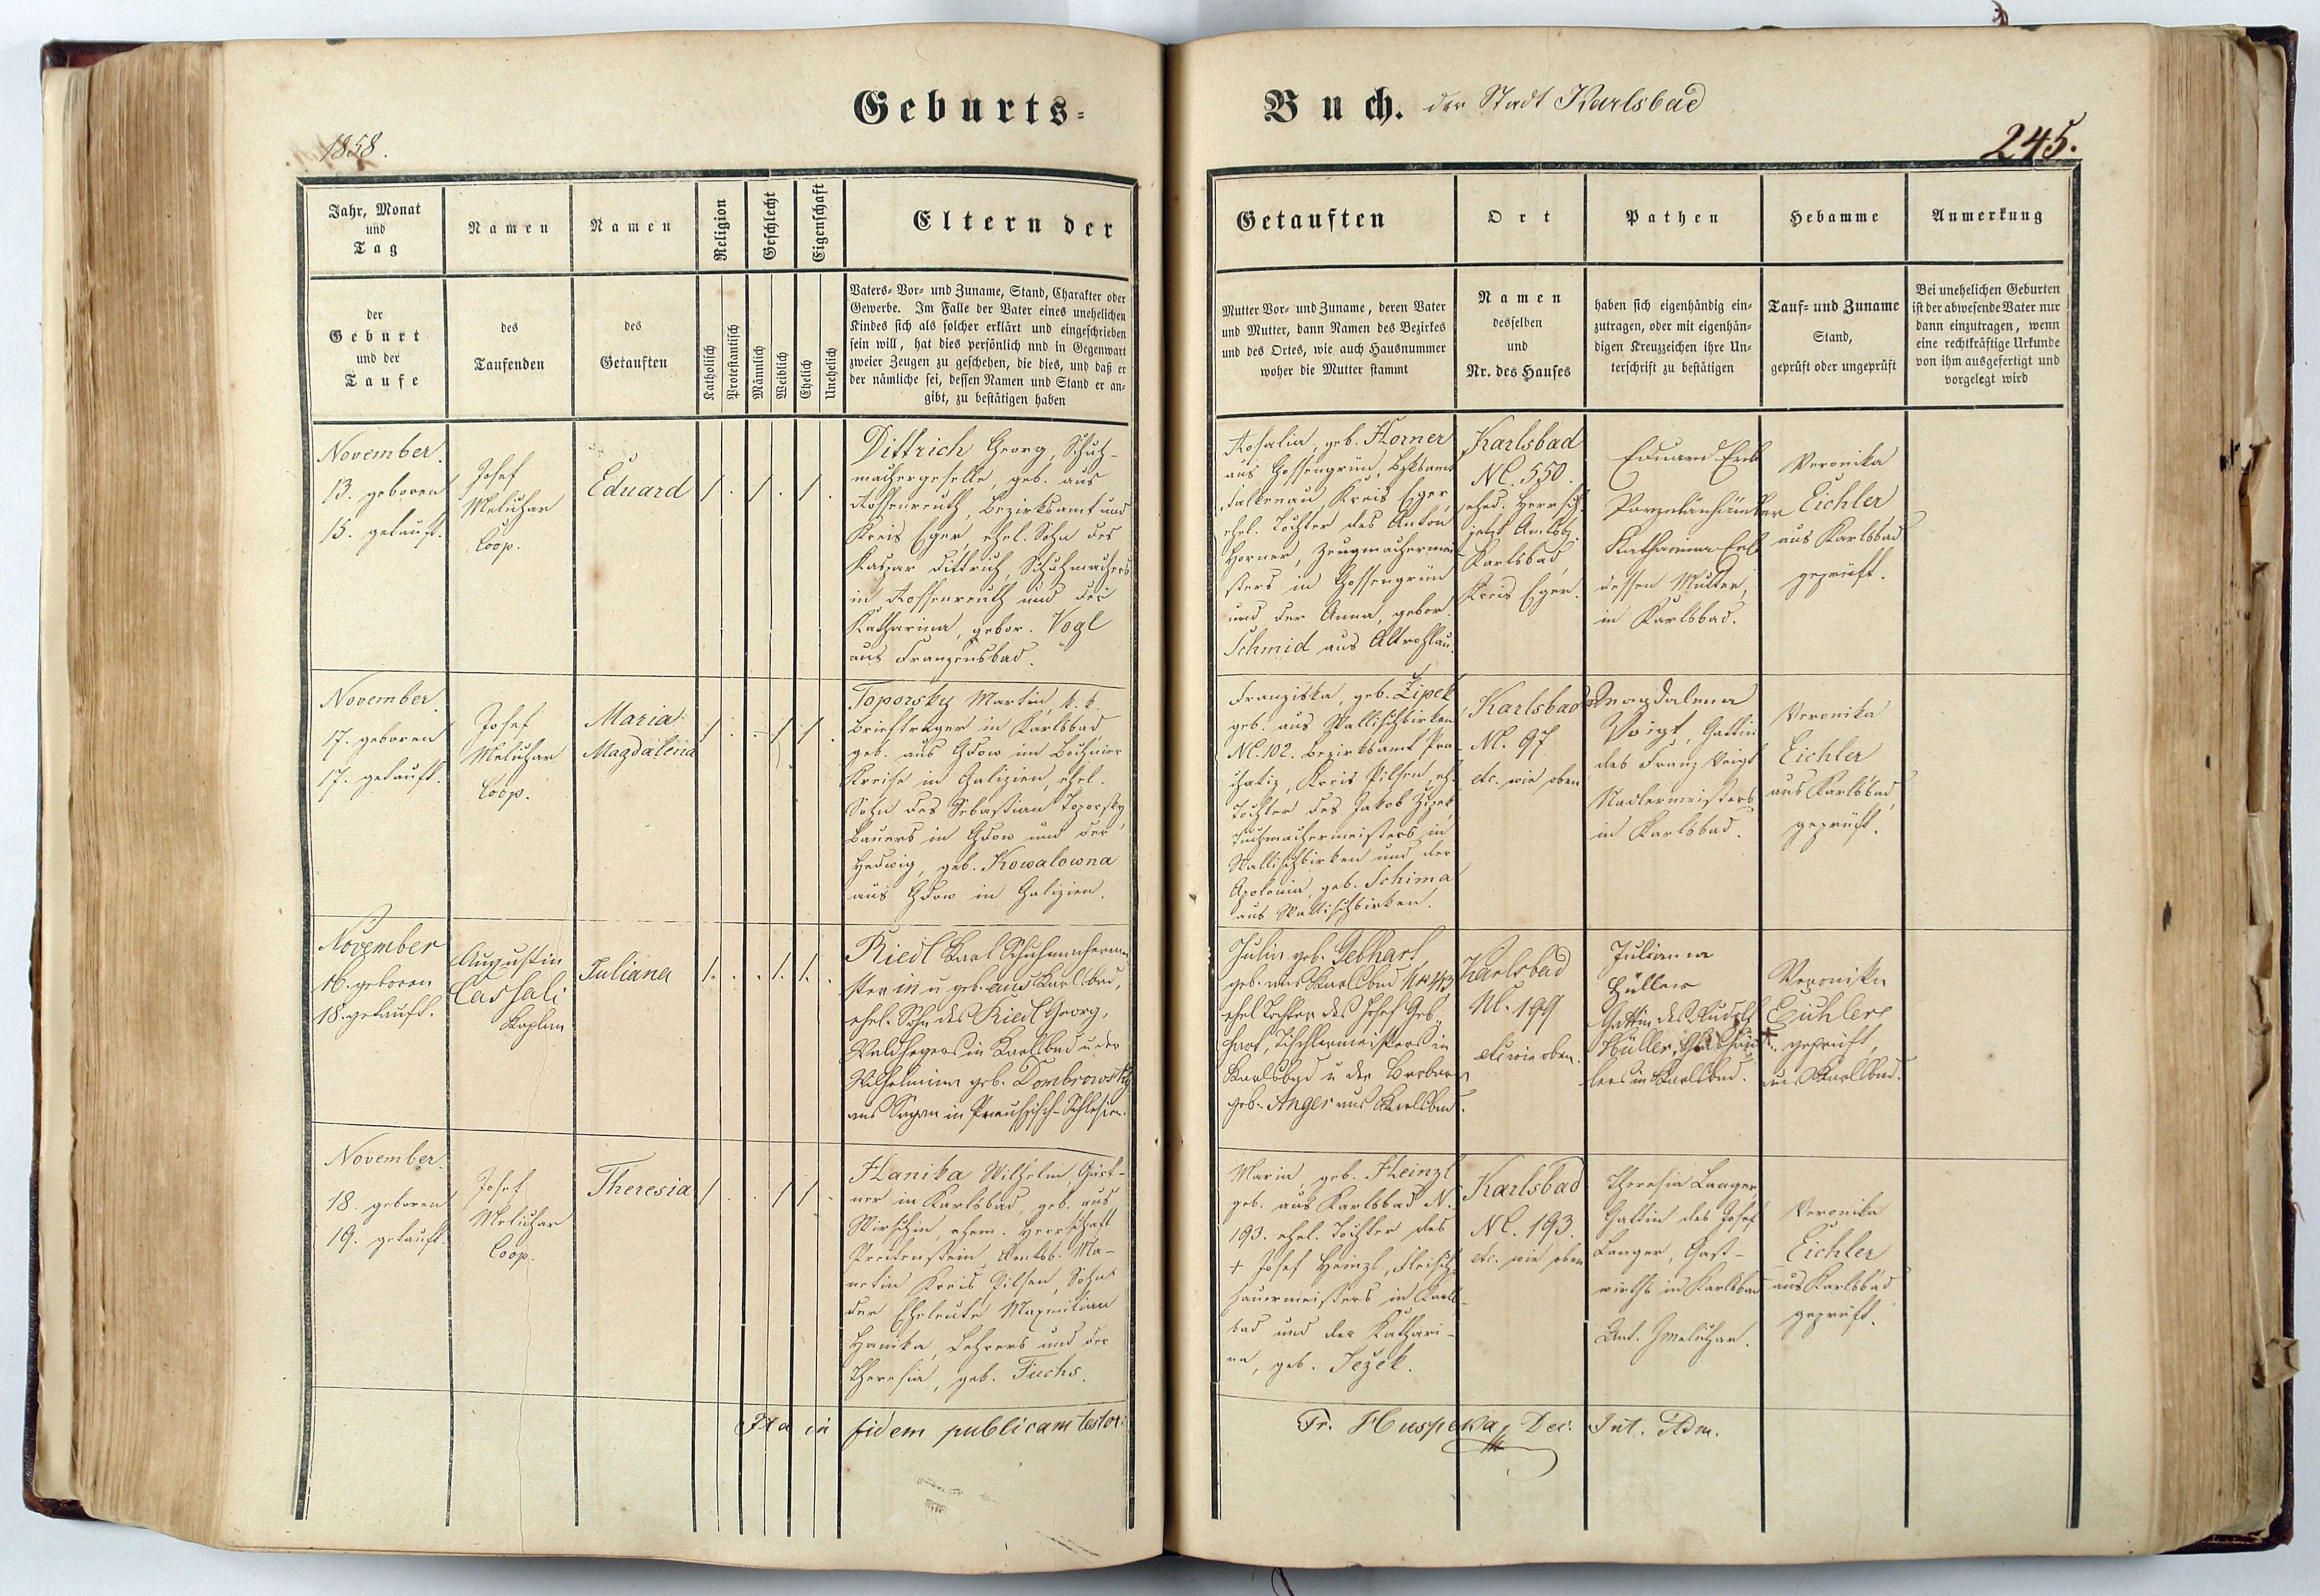 Geburts-
Buch. der Stadt Karlsbad
1858.
245.
Jahr, Monat
und
Tag
der
Geburt
und der
Taufe
Namen
des
Taufenden
Namen
des
Getauften
Religion
Katholisch
Protestantisch
Geschlecht
Männlich
Weiblich
Eigenschaft
Ehelich
Unehelich
Eltern der
Vaters- Vor- und Zuname, Stand, Charakter oder
Gewerbe. Im Falle der Vater eines unehelichen
Kindes sich als solcher erklärt und eingeschrieben
sein will, hat dies persönlich und in Gegenwart
zweier Zeugen zu geschehen, die dies, und daß er
der nämliche sei, dessen Namen und Stand er an-
gibt, zu bestätigen haben
Getauften
Mutter Vor- und Zuname, deren Vater
und Mutter, dann Namen des Bezirkes
und des Ortes, wie auch Hausnummer
woher die Mutter stammt
Ort
Namen
desselben
und
Nr. des Hauses
Pathen
haben sich eigenhändig ein-
zutragen, oder mit eigenhän-
digen Kreuzzeichen ihre Un-
terschrift zu bestätigen
Hebamme
Tauf- und Zuname
Stand,
geprüft oder ungeprüft
Anmerkung
Bei unehelichen Geburten
ist der abwesende Vater nur
dann einzutragen, wenn
eine rechtkräftige Urkunde
von ihm ausgefertigt und
vorgelegt wird
November.
13. geboren
15. getauft.
Josef
Melichar
Coop.
Eduard
Dittrich Georg, Schuh-
machergeselle, geb. aus
Rossenreuth, Bezirksamt und
Kreis Eger, ehel. Sohn des
Kaspar Dittrich, Schuhmachers
in Rossenreuth und der
Katharina, gebor. Vogl
aus Franzensbad.
Rosalia, geb. Horner
aus Gossengrün, Bzksamt
Falkenau, Kreis Eger,
ehel. Tochter des Anton
Horner, Zeugmachermei-
sters in Gossengrün
und der Anna, gebor.
Schmid aus Altrohlau.
Karlsbad
N. 550.
ehed. Herrsch.
jetzt Amtsbz.
Karlsbad,
Kreis Eger.
Eduard Erb
Porzelänhändler
Katharina Erb
dessen Mutter,
in Karlsbad.
Veronika
Eichler
aus Karlsbad
geprüft.
November.
17. geboren
17. getauft.
Josef
Melichar
Coop.
Maria
Magdalena
Toporsky Martin, k. k.
Briefträger in Karlsbad
geb. aus Gdow im Bochnier
Kreise in Galizien, ehel.
Sohn des Sebastian Toporsky,
Bauers in Gdow und der
Hedwig, geb. Kowalowna
aus Gdow in Galizien.
Franziska, geb. Zipek
geb. aus Wallischbirken
N. 102. Bezirksamt Pra-
chatiz, Kreis Pilsen, eh.
Tochter des Jakob Zipek,
Tuchmachermeisters in
Wallischbirken und der
Apolonia, geb. Schima
aus Wallischbirken.
Karlsbad
N. 97
etc. wie oben
Magdalena
Voigt, Gattin
des Franz Voigt
Nadlermeisters
in Karlsbad.
Veronika
Eichler
aus Karlsbad,
geprüft.
November
16. geboren
18. getauft.
Augustin
Cassali
Kaplan
Juliana
Riedl Karl Schuhmachermei-
ster in u geb. aus Karlsbad,
ehel. Sohn des Riedl Georg,
Waldhegers in Karlsbad u der
Wilhelmina geb. Dombrowsky
aus Sagan in Preußisch-Schlesien.
Julia geb. Gebhart,
geb. aus Karlsbad
ehel. Tochter des Josef Geb-
hart, Tischlermeisters in
Karlsbad u der Barbara
geb. Anger aus Karlsbad.
Karlsbad
N. 199
etc wie oben.
Julianna
Hüller
Gattin des Rudolf
Hüller,
lers in Karlsbad.
Veronika
Eichler
geprüft,
aus Karlsbad.
November.
18. geboren
19. getauft.
Josef
Melichar
Coop.
Theresia
Hanika Wilhelm, Gärt-
ner in Karlsbad, geb. aus
Wirschin, ehem. Herrschaft
Preitenstein, Amtsb. Ma-
netin Kreis Pilsen, Sohn
der Eheleute Maxmilian
Hanika, Lehrers und der
Theresia, geb. Fuchs.
Maria, geb. Heinzl
geb. aus Karlsbad N.
193. ehel. Tochter des
+ Josef Heinzl, Fleisch-
hauermeisters in Karls-
bad und der Kathari-
na, geb. Ježek.
Karlsbad
N. 193.
etc. wie oben
Theresia Langer,
Gattin des Josef
Langer, Gast-
wirths in Karlsbad
Veronika
Eichler
aus Karlsbad
geprüft.
Ita in fidem publicam testor:
Fr. Huspeka, Dec: Int. Adm.